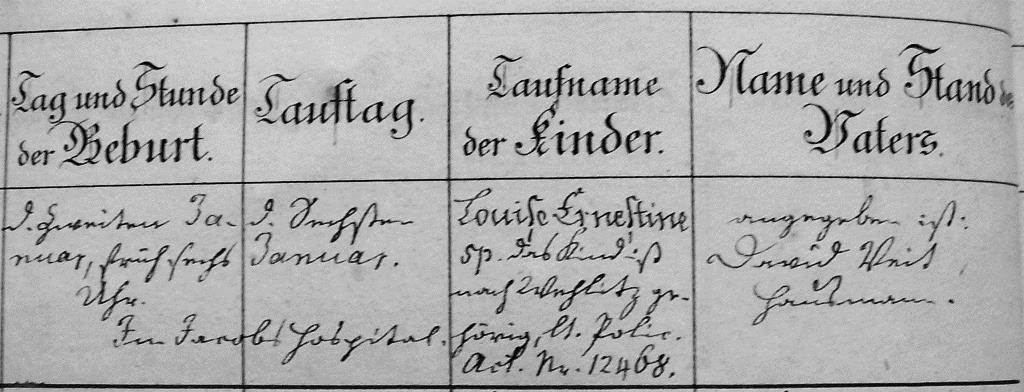 Tag und Stunde
der Geburt.
Tauftag.
Taufname
der Kinder.
Name und Stand des
Vaters.
d. zweiten Ja-
nuar, früh sechs
Uhr.
d. Sechsten
Januar.
Im Jacobshospital.
Louise Ernestine
sp. das Kind ist
nach Wehlitz ge-
hörig, lt. Polic.
Act. Nr. 12468.
angegeben ist:
David Veit
Hausmann.